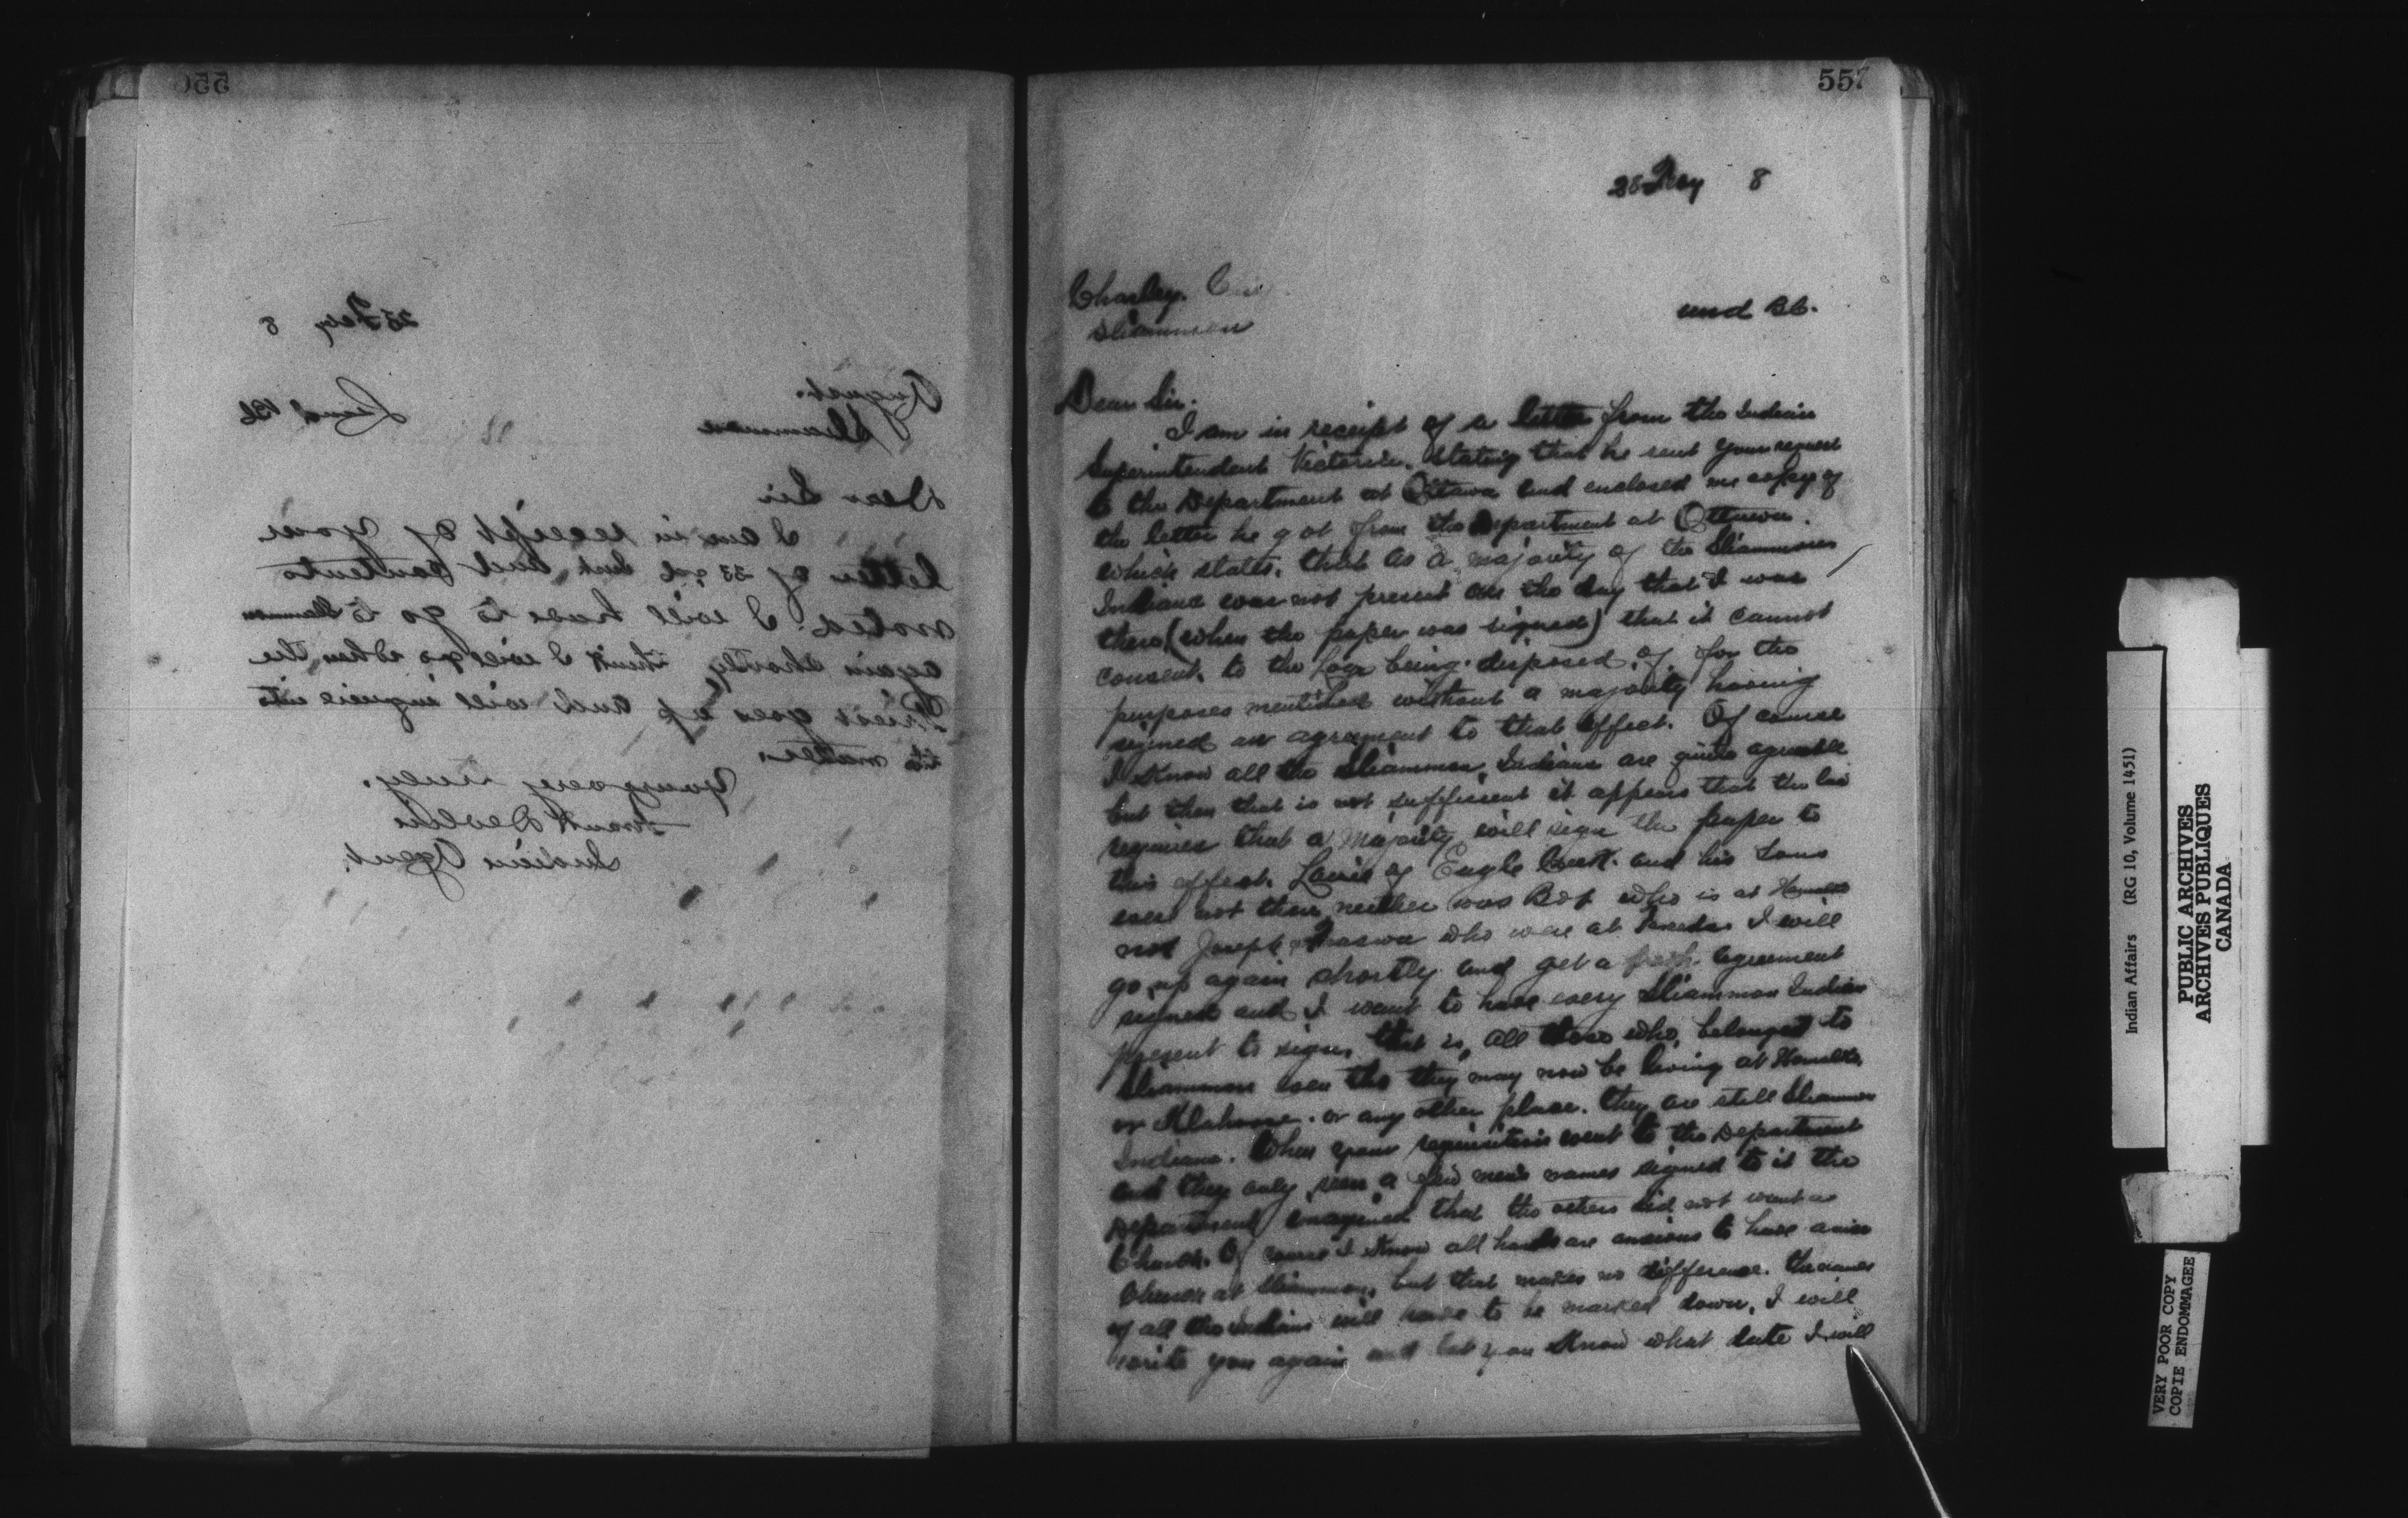 25 Feby 8
August.
Sliammon
Lund BC
Dear Sir
I am in receipt of your
letter of 22nd Inst and contents
noted. I will have to go to Sliammon
again shortly think I will go when the
Priest goes up and will inquire into
the matter
Yours very truly.
Frank Devlin
Indian Agent.
557
28 Feby 8
Charley.
Sliammon
und BC.
Dear Sir.
I am in receipt of a letter from the Indian
Superintendent Victoria. stating that he sent your request
to the Department at Ottawa and enclosed me copy of
the letter he got from the Department at Ottawa.
which states. that as a majority of the Sliammon
Indians was not present on the day that I was
there (when the paper was signed) that it cannot
consent to the being disposed of for the
purposes mentioned without a majority having
signed an agreement to that effect. Of course
I Know all the Sliammon Indians are quite agreeable
but then that is not sufficient it appears that the law
requires that a majority will sign the paper to
this effect. Louie of Eagle and his Sons
were not there neither was Bob who is at
nor Joseph who were at I will
go up again shortly and get a fresh agreement
signed and I want to have every Sliammon Indian
present to sign, that is, all those who belonged to
Sliammon even tho they may now be living at
or Klahoose. or any other place. they are still Sliammon
Indians. When your requisition went to the Department
and they only seen a few men's names signed to it the
Department imagined that the others did not want a
Church. Of course I Know all hands are anxious to have a nice
Church at Sliammon, but that makes no difference. the names
of all the Indians will have to be marked down, I will
write you again and let you Know what date I will
Indian Affairs (RG 10, Volume 1451)
PUBLIC ARCHIVES
ARCHIVES PUBLIQUES
CANADA
VERY POOR COPY
COPIE ENDOMMAGEE